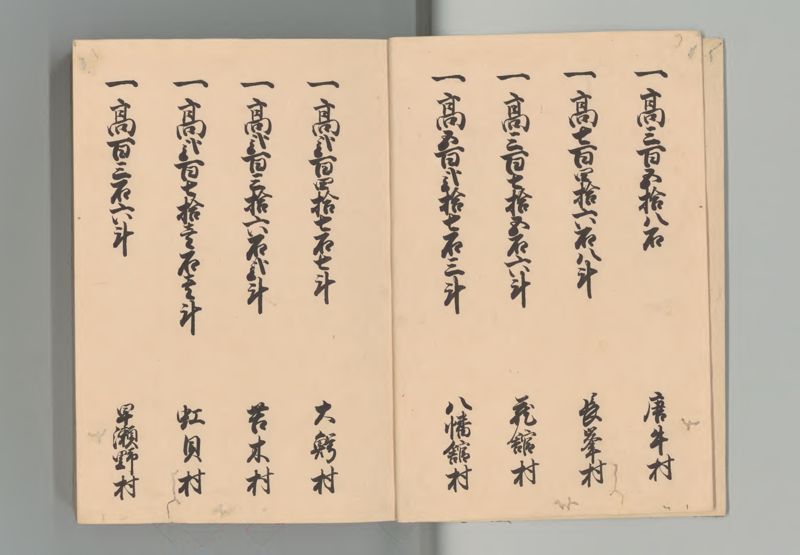 一髙三百五拾八石 唐牛村
一髙七百四拾六石八斗 長峯村
一髙三百七拾五石六斗 蔵舘村
一髙五百弐拾七石三斗 八幡舘村
一髙弐百四拾七石七斗 大鰐村
一髙弐百三拾六石弐斗 苦木村
一髙弐百七拾壱石壱斗 虹貝村
一髙百三石六斗 早瀬野村